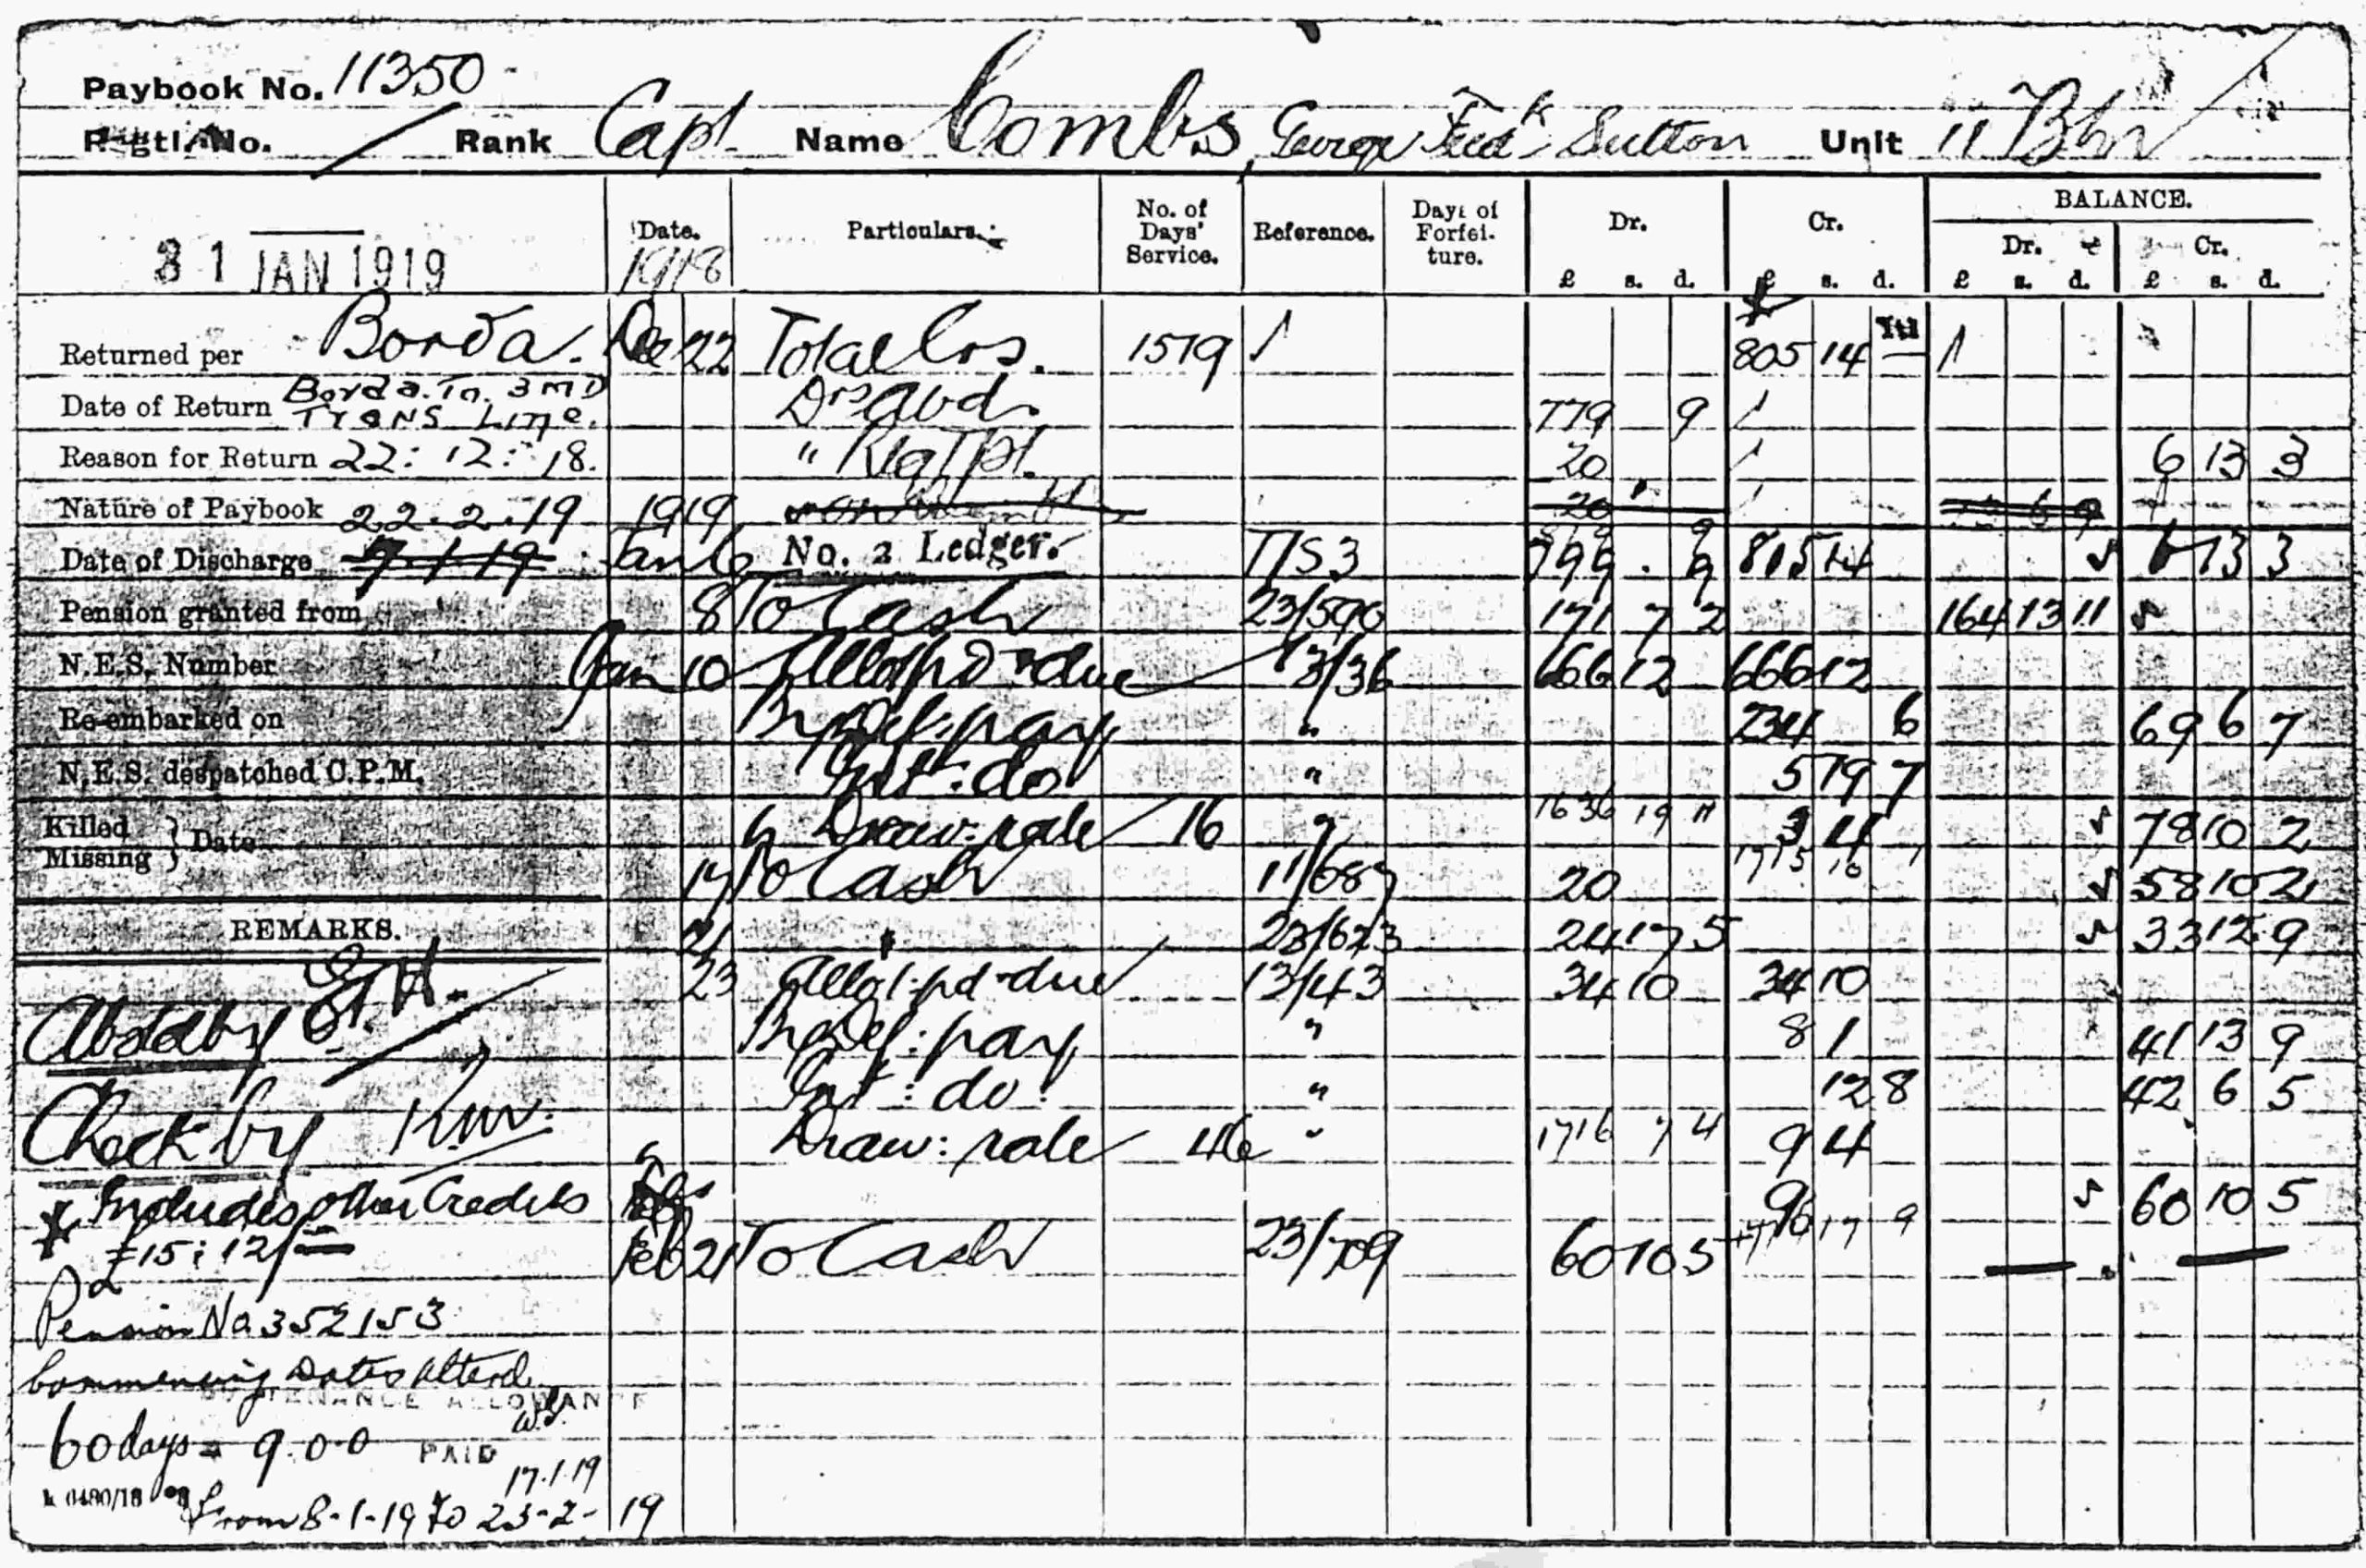 Paybook No. 11350
Regtl. No. / Rank Capt Name Combs, George Fredk Sutton Unit 11 Bn
31 JAN 1919 Date. 1918 Particulars. No. of Days' Service. Reference. Days of Forfei-ture. Dr. £ s. d. Cr. £ s. d. BALANCE. Dr. £ s. d. Cr. £ s. d.
Returned per Borda. Dec 22 Total Crs. 1579 805 14 —
Date of Return Borda. To. 3 MD TRANS Line. Drs Abd. 779 9
Reason for Return 22: 12: 18. " 20 6 13 3
Nature of Paybook 22.2.19 1919 20
Date of Discharge 7/1/19 Jan 6 No. 2 Ledger. T/S3 799 . 9 805 14 6 13 3
Pension granted from 8 To Cash 23/590 171 7 2 164 13 11
N.E.S. Number Jan 10 Allot pd & due 13/36 666 12 666 12
Re-embarked on By Def: pay " 234 6 69 6 7
N.E.S. despatched C.P.M. Int: do " 5 19 7
Killed Missing } Date Draw: rate 16 " 1636 19 11 3 4 78 10 2
17 To Cash 11/687 20 1715 10 1 58 10 2
REMARKS. 21 " 23/623 24 17 5 33 12 9
23 Allot: pd & due 13/43 34 10 34 10
Abstd by By Def: pay " 8 1 41 13 9
Int: do " 12 8 42 6 5
Check by Draw: rate 46 " 1716 7 4 9 4
* Includes other Credits 60 10 5
£15: 12/- Feb 21 To Cash 23/709 60 10 5 17 9
Pension No 352153
Commencing Dates Altered
SUSTENANCE ALLOWANCE
60 days = 9.0.0 PAID
17.1.19
From 8-1-19 to 23-2-19